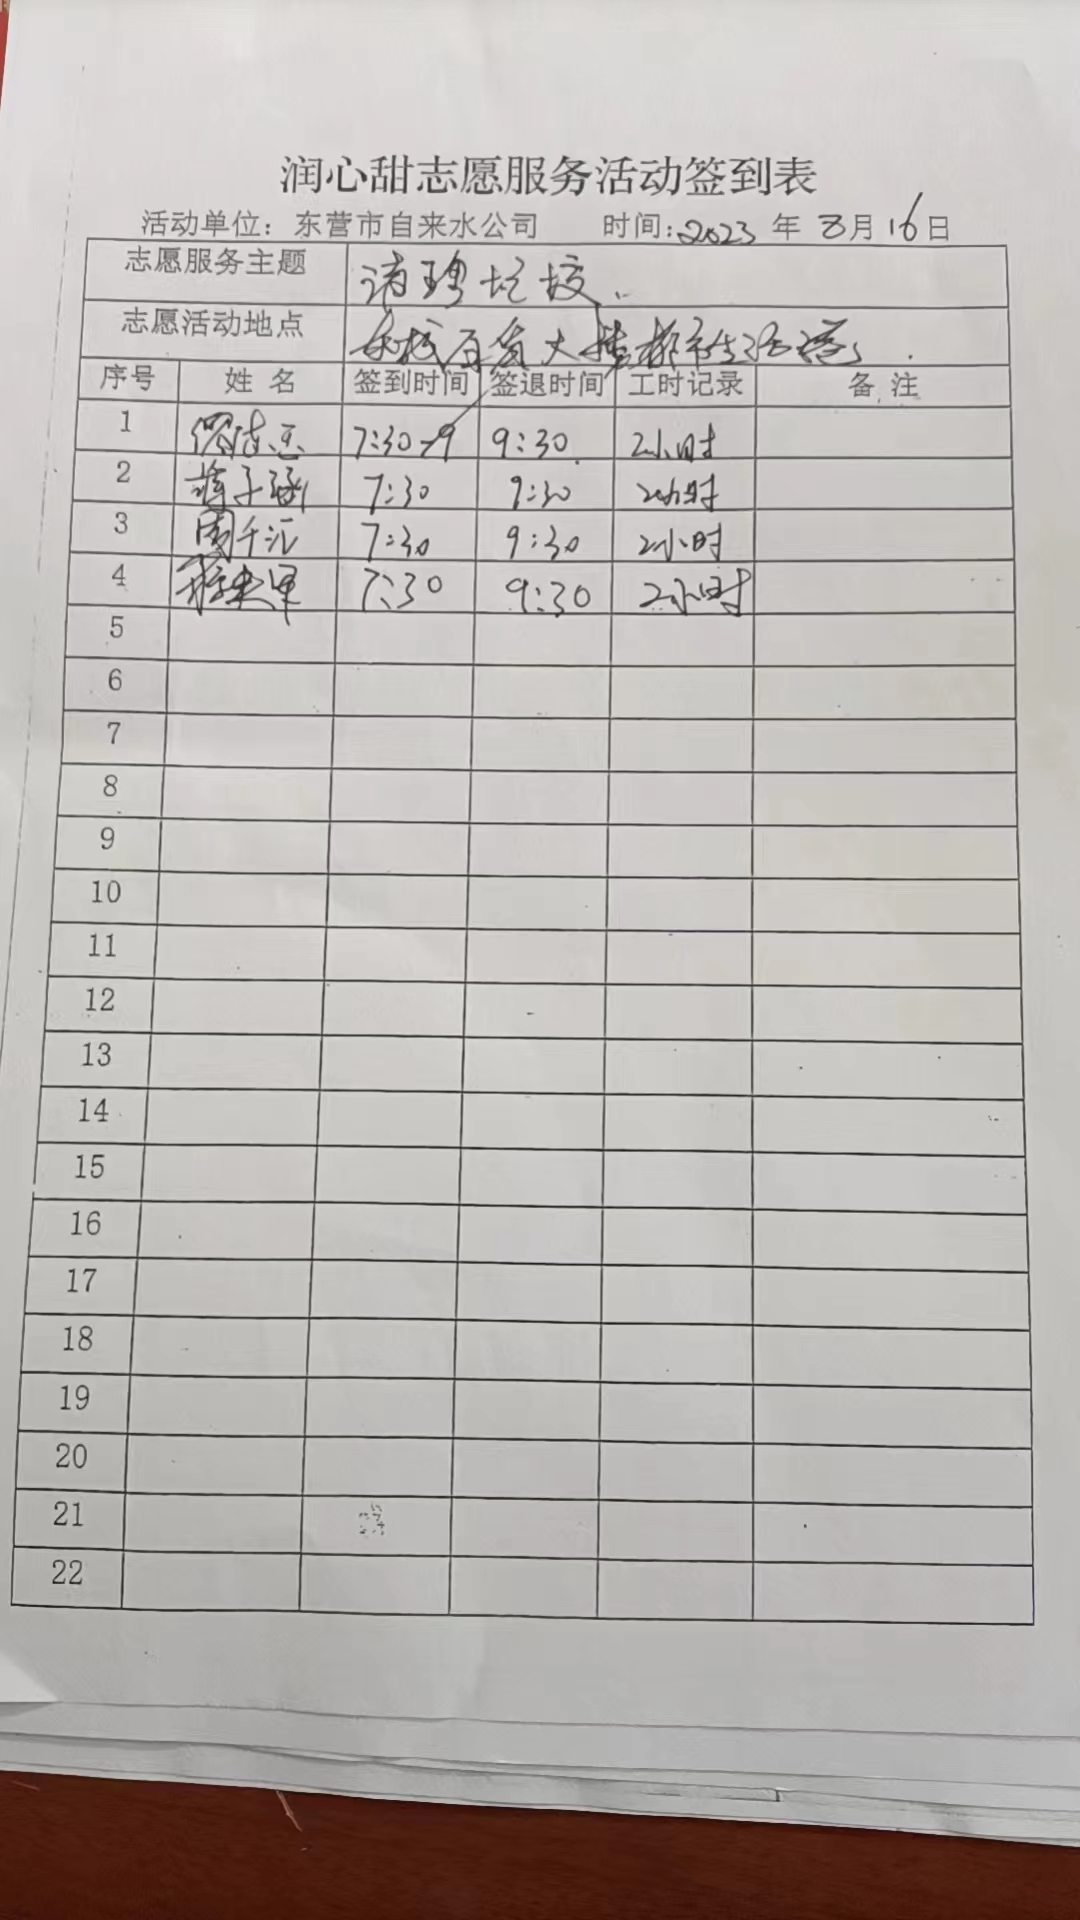 润心甜志愿服务活动签到表
活动单位：东营市自来水公司 时间：2023年8月16日
志愿服务主题 清理垃圾
志愿活动地点 大楼都市生活
序号 姓名 签到时间 签退时间 工时记录 备注
1 7:30 9:30 2小时
2 蒋子涵 7:30 9:30 2小时
3 周千汇 7:30 9:30 2小时
4 7:30 9:30 2小时
5
6
7
8
9
10
11
12
13
14
15
16
17
18
19
20
21
22